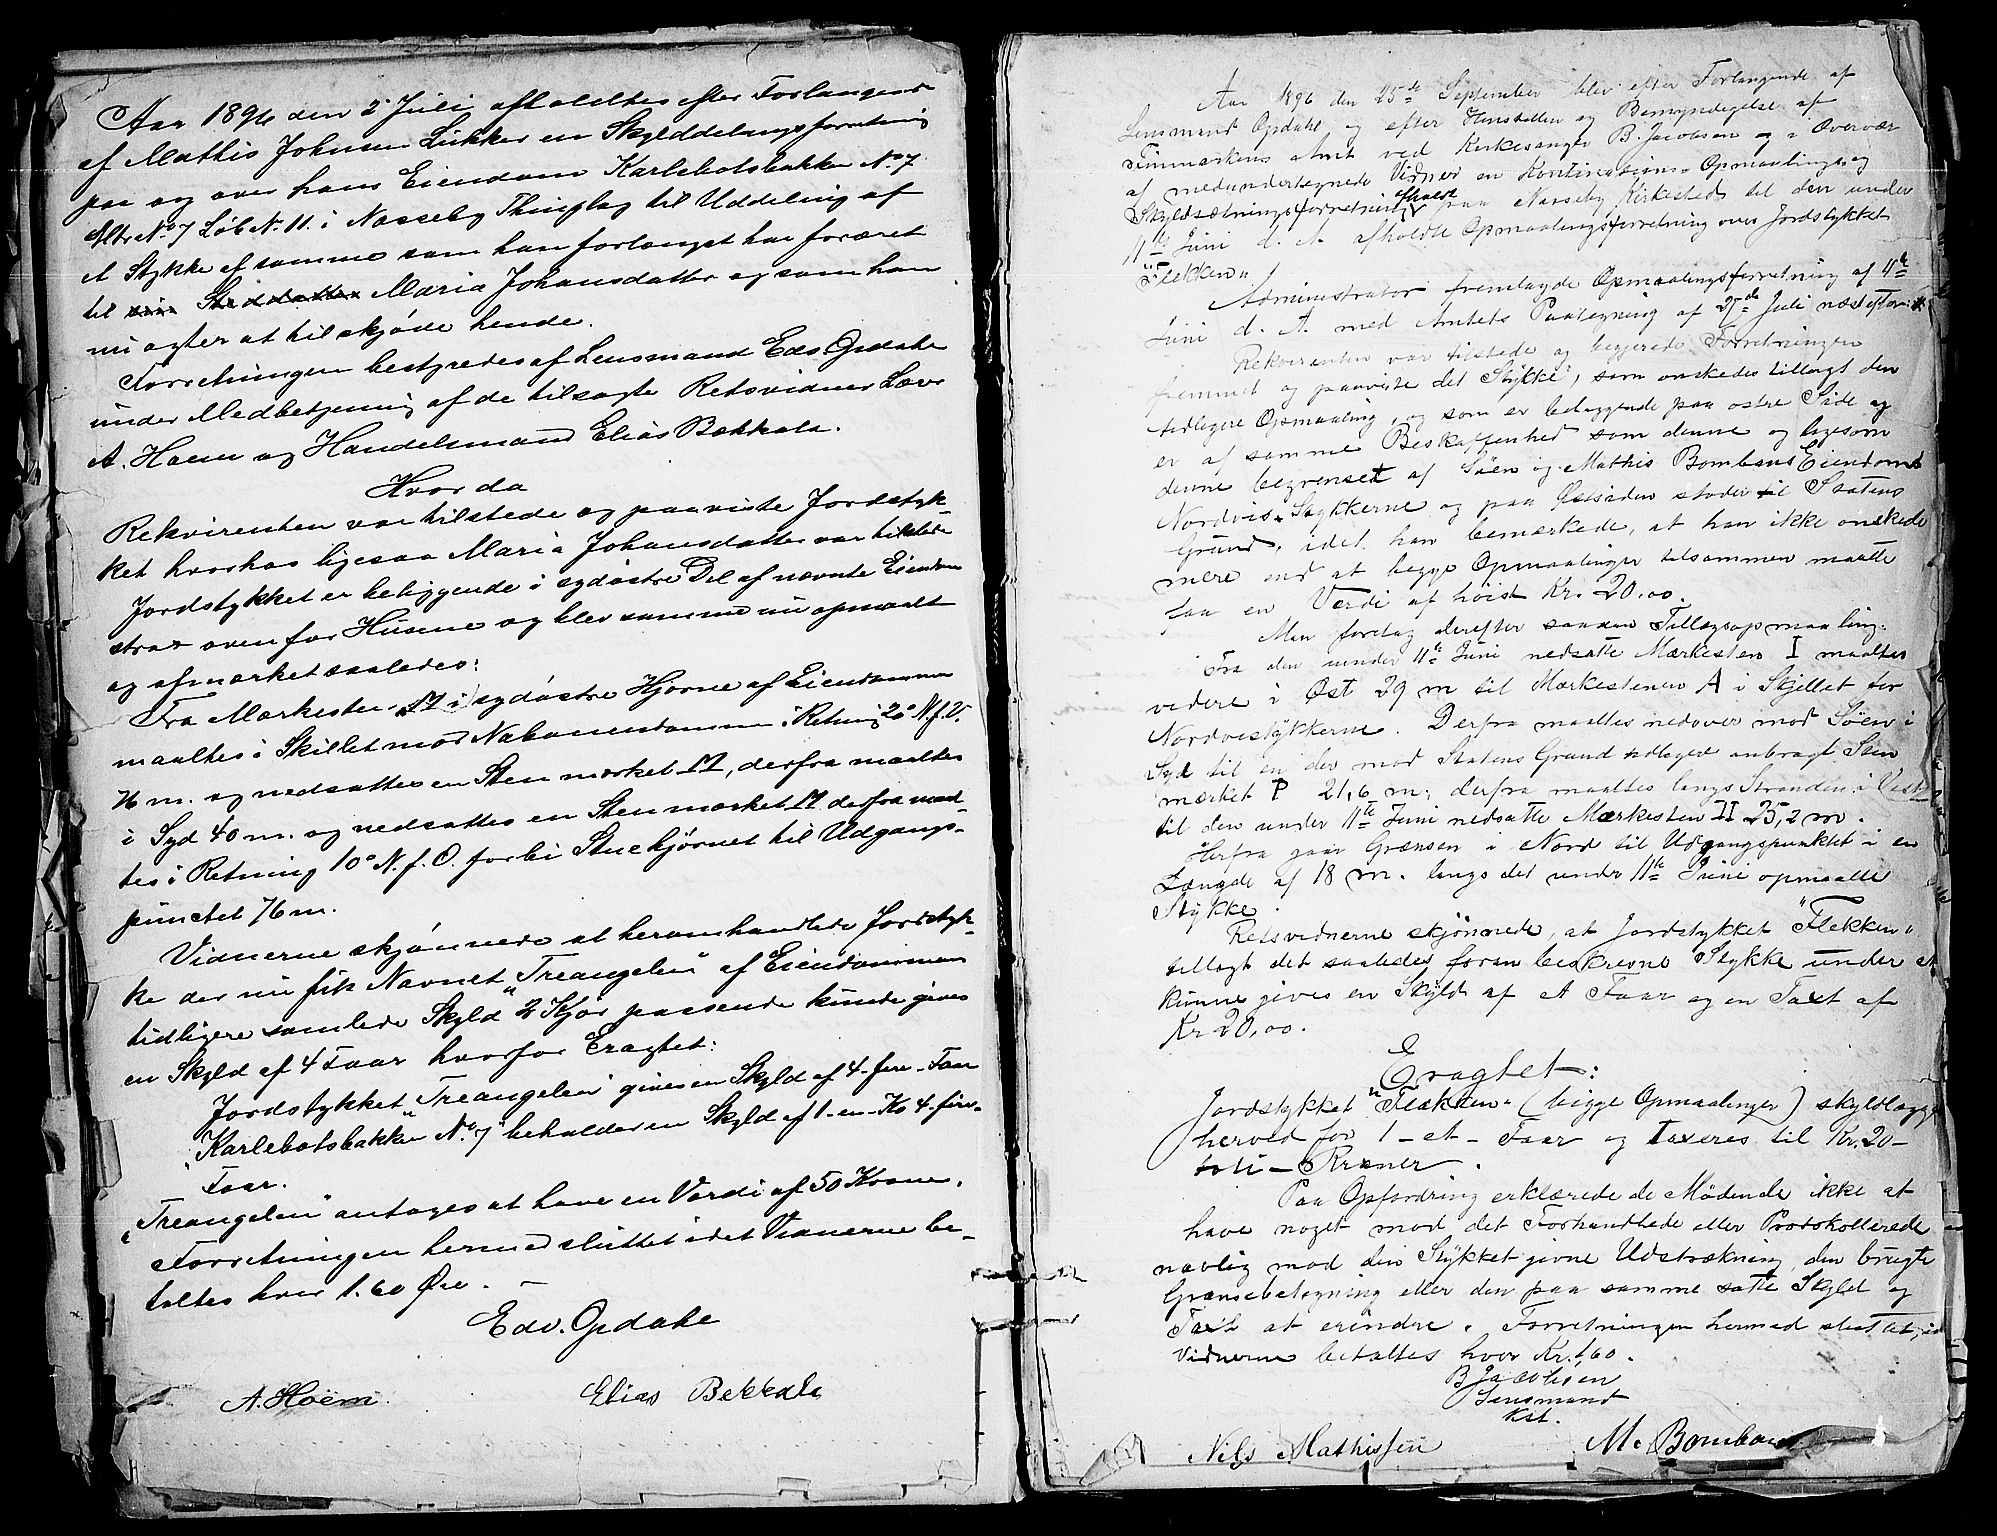 Aar 1896 den 2 Juli afholdtes efter Forlangend
af Mathis Johnsen Lukker en Skylddelingsforretning
paa og over hans Eiendom Karlebotsbakke No 7
Mtr No 7 Løb N. 11. i Nasseby Thinglag til Uddeling af
et Stykke af samme som han forlængst har foræret
til sin Steddatter Maria Johansdatter og som han
nu agter at tilskjøde hende.
Forretningen bestyredes af Lensmand Edv Opdahl
under Medbetjening af de tilsagte Retsvidner Lærer
A. Hoem og Handelsmand Elias Bækkala.
Hvorda
Rekvirenten var tilstede og paaviste Jordstyk-
ket hvorhos ligesaa Maria Johansdatter var tilstede
Jordstykket er beliggende i sydøstre Del af nævnte Eiendom
strax ovenfor Husene og blev samme nu opmaalt
og afmærket saaledes:
Fra Mærkesten M i sydøstre Hjørne af Eiendommen
maaltes i Skillet mod Naboeiendommen i Retning 20° N. f. V.
76 m. og nedsattes en Sten mærket M, derfra maaltes
i Syd 40 m. og nedsattes en Sten mærket M derfra maal-
tes i Retning 10° N. f. O. forbi Stuehjørnet til Udgangs-
punctet 76 m.
Vidnerne skjønnede at heromhandlede Jordstyk-
ke der nu fik Navnet "Treangelen" af Eiendommens
tidligere samlede Skyld 2 Kjør passende kunde gives
en Skyld af 4 Faar hvorfor Eragtet:
Jordstykket "Treangelen" gives en Skyld af 4-fire-Faar
"Karlebotsbakke No 7" beholder en Skyld af 1-en-Ko 4-fire-
Faar.
"Treangelen" antages at have en Værdi af 50 Kroner.
Forretningen hermed sluttet idet Vidnerne be-
taltes hver 1.60 Øre. —
Edv. Opdahl
A. Hoem Elias Bekkala
Aar 1896 den 25de September blev efter Forlangende af
Lensmand Opdahl og efter Henstillen og Bemyndigelse af
Finmarkens Amt ved Kirkesanger B. Jacobsen og i Overvær
af medundertegnede Vidner en Kontinuations-Opmaalings og
Skyldsætningsforretning afholdt paa Nasseby Kirkested til den under
11te Juni d. A. afholdte Opmaalingsforretning over Jordstykket
"Flekken"
Administrator fremlagde Opmaalingsforretning af 11te
Juni d. A. med Amtets Paategning af 27de Juli næstefter.
Rekvirenten var tilstede og begjerede Forretningen
fremmet og paaviste det Stykke, som ønskedes tillagt den
tidligere Opmaaling, og som er beliggende paa østre Side og
er af samme Beskaffenhed som denne og ligesom
denne begrenset af Søen og Mathis Bombans Eiendom
Nordvis-Stykkerne og paa Østsiden støder til Statens
Grund, idet han bemærkede, at han ikke ønskede
mere end at begge Opmaalinger tilsammen maatte
faa en Værdi af høist Kr. 20.00.
Man foretog derefter saadan Tillægsopmaaling:
Fra den under 11te Juni nedsatte Mærkesten I maaltes
videre i Øst 29 m til Mærkestenen A i Skjellet for
Nordvistykkerne. Derfra maaltes nedover mod Søen i
Syd til en der mod Statens Grund tidligere anbragt Sten
mærket P 21,6 m; derfra maaltes langs Stranden i Vest
til den under 11te Juni nedsatte Mærkesten II 25,2 m.
Herfra gaar Grænsen i Nord til Udgangspunktet i en
Længde af 18 m. langs det under 11te Juni opmaalte
Stykke.
Retsvidnerne skjønnede, at Jordstykket "Flekken"
tillagt det saaledes foran beskrevne Stykke under et
kunne gives en Skyld af et Faar og en Taxt af
Kr 20,00.
Eragtet:
Jordstykket "Flekken" (begge Opmaalinger) skyldlægges
herved for 1-et-Faar og Taxeres til Kr. 20-
tyve-Kroner.
Paa Opfordring erklærede de Mødende ikke at
have noget mod det Forhandlede eller Protokollerede
navnlig mod den Stykket givne Udstrækning, den brugte
Grænsebetegning eller den paa samme satte Skyld og
Taxt at erindre. Forretningen hermed sluttet, idet
Vidnerne betaltes hver Kr. 1,60.
B Jacobsen
Lensmand
kst.
Nils Mathissen M. Bomban